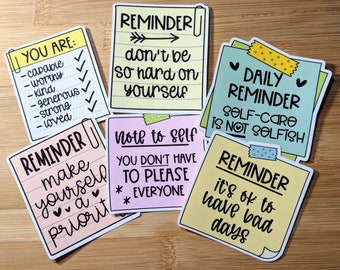 YOU ARE:
- capable
- worthy
- kind
- generous
- strong
- loved
REMINDER
don't be
so hard on
yourself
DAILY
REMINDER
SELF-CARE
IS NOT SELFISH
REMINDER
make
yourself
a
priority
Note to self
YOU DON'T HAVE
TO PLEASE
EVERYONE
REMINDER
it's ok to
have bad
days